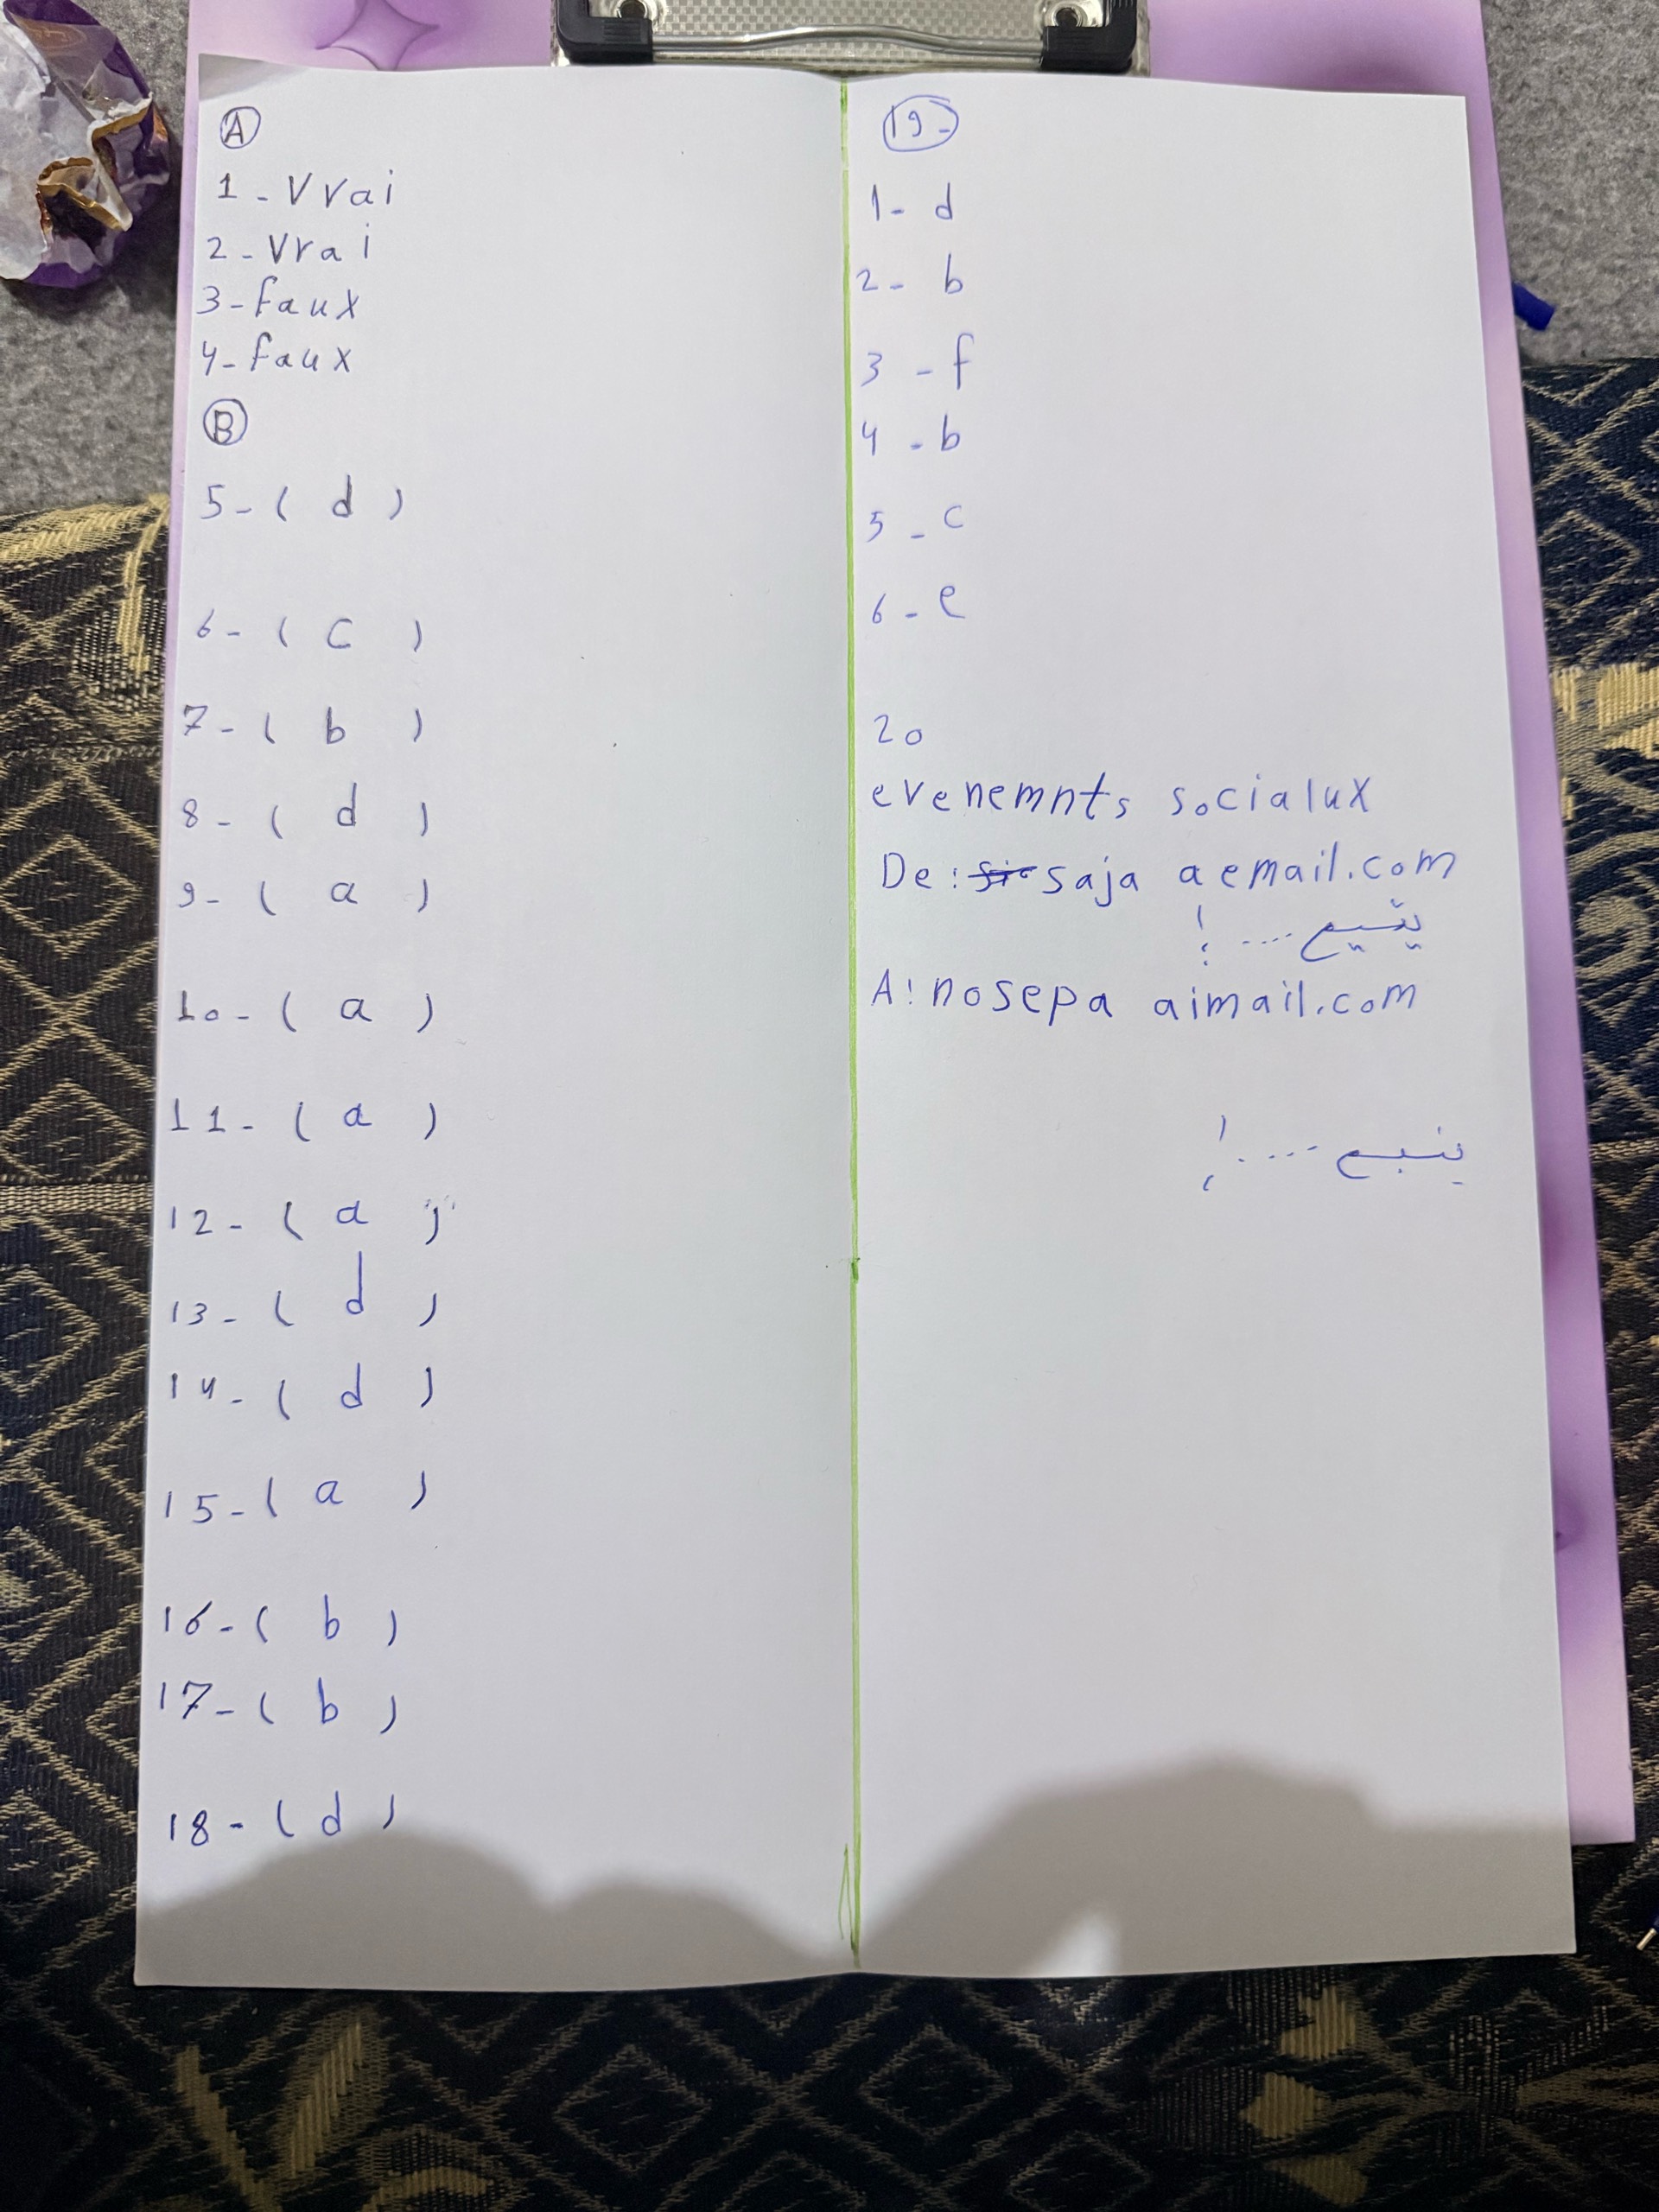 A
1 - Vrai
2 - Vrai
3 - faux
4 - faux
B
5 - ( d )
6 - ( c )
7 - ( b )
8 - ( d )
9 - ( a )
10 - ( a )
11 - ( a )
12 - ( a )
13 - ( d )
14 - ( d )
15 - ( a )
16 - ( b )
17 - ( b )
18 - ( d )
19 -
1 - d
2 - b
3 - f
4 - b
5 - c
6 - e
20
evenemnts socialux
De: saja aemail.com
يتبع .... !
A: nosepa aimail.com
يتبع .... !